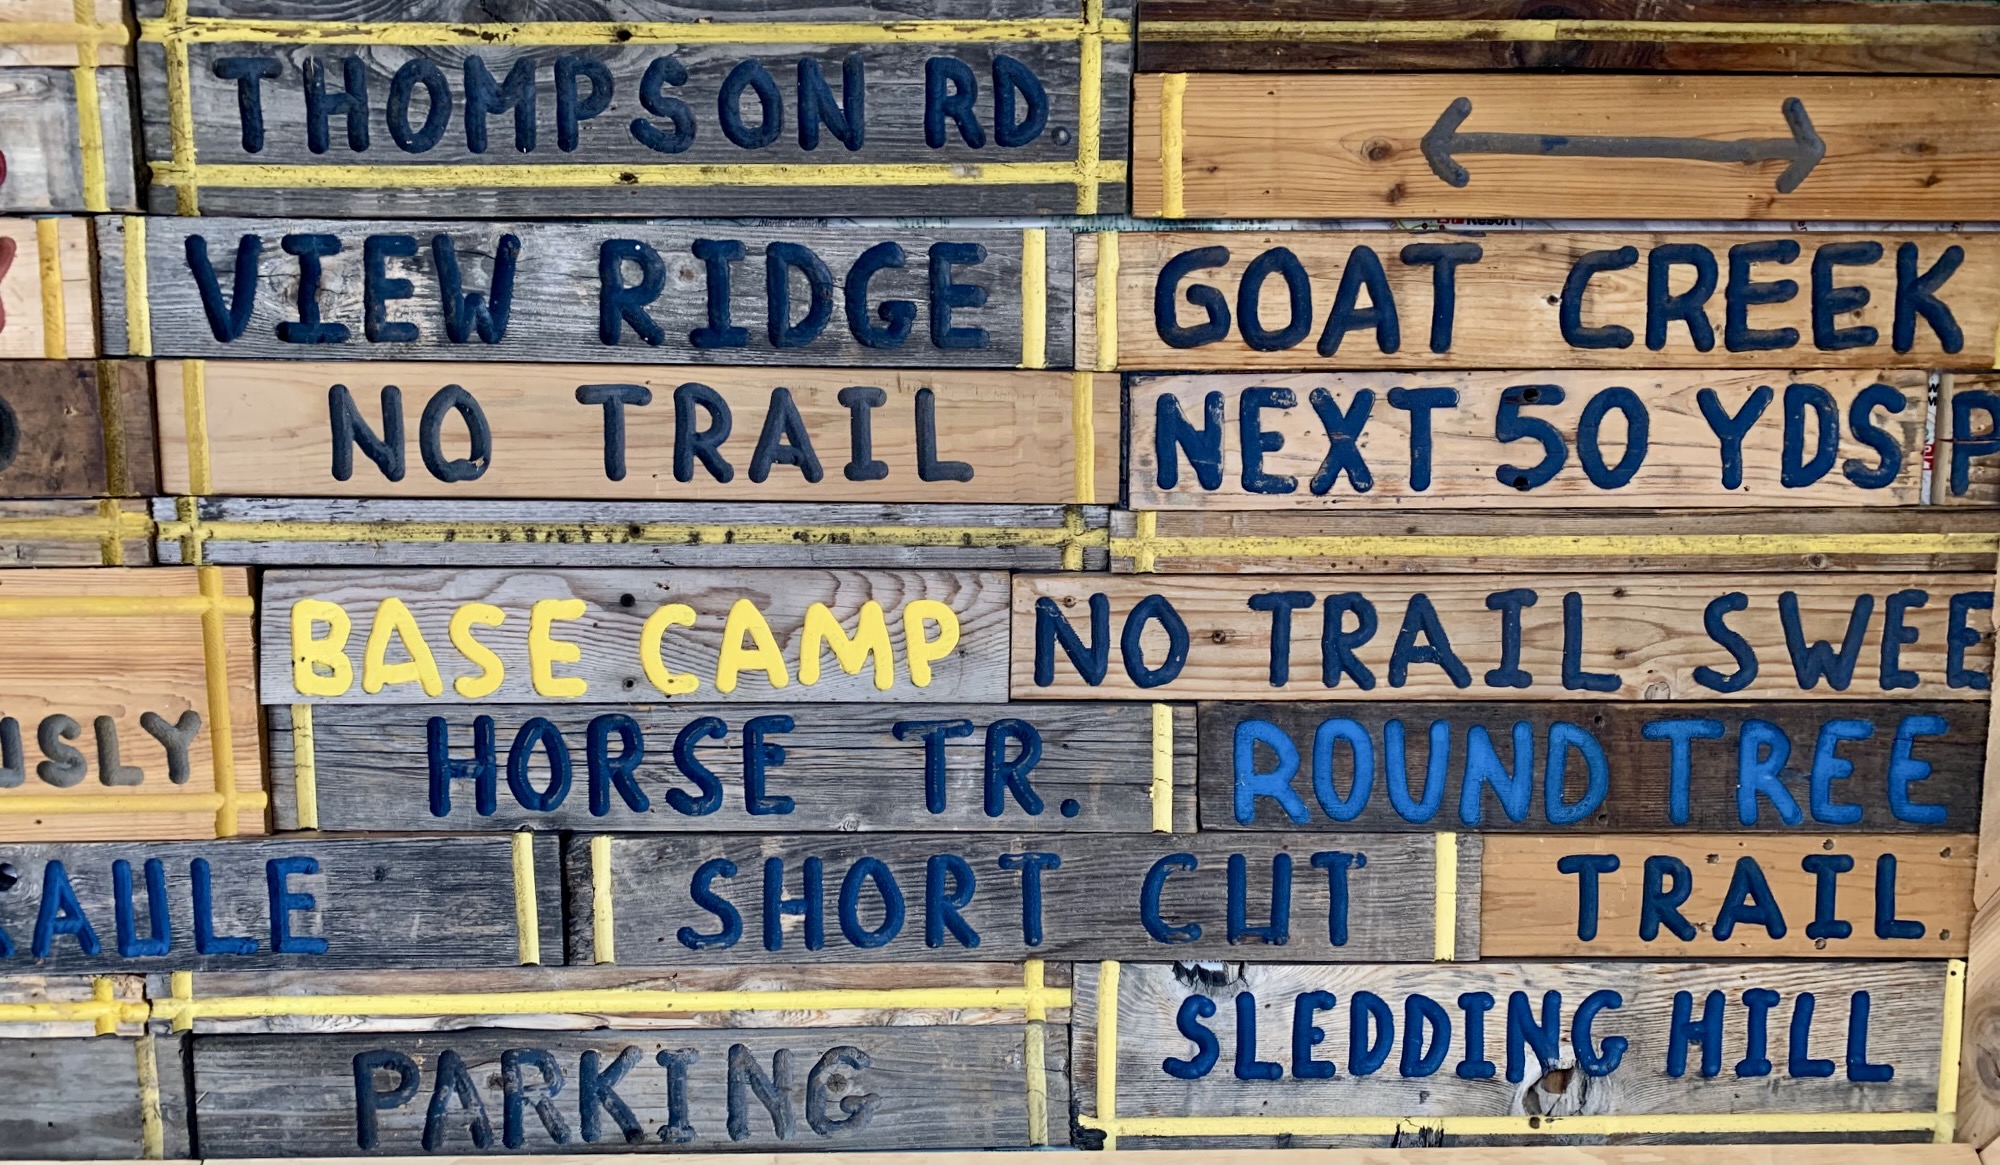 THOMPSON RD.
VIEW RIDGE
GOAT CREEK
NO TRAIL
NEXT 50 YDS P
BASE CAMP
NO TRAIL SWEE
USLY
HORSE TR.
ROUND TREE
KAULE
SHORT CUT
TRAIL
SLEDDING HILL
PARKING
Resort